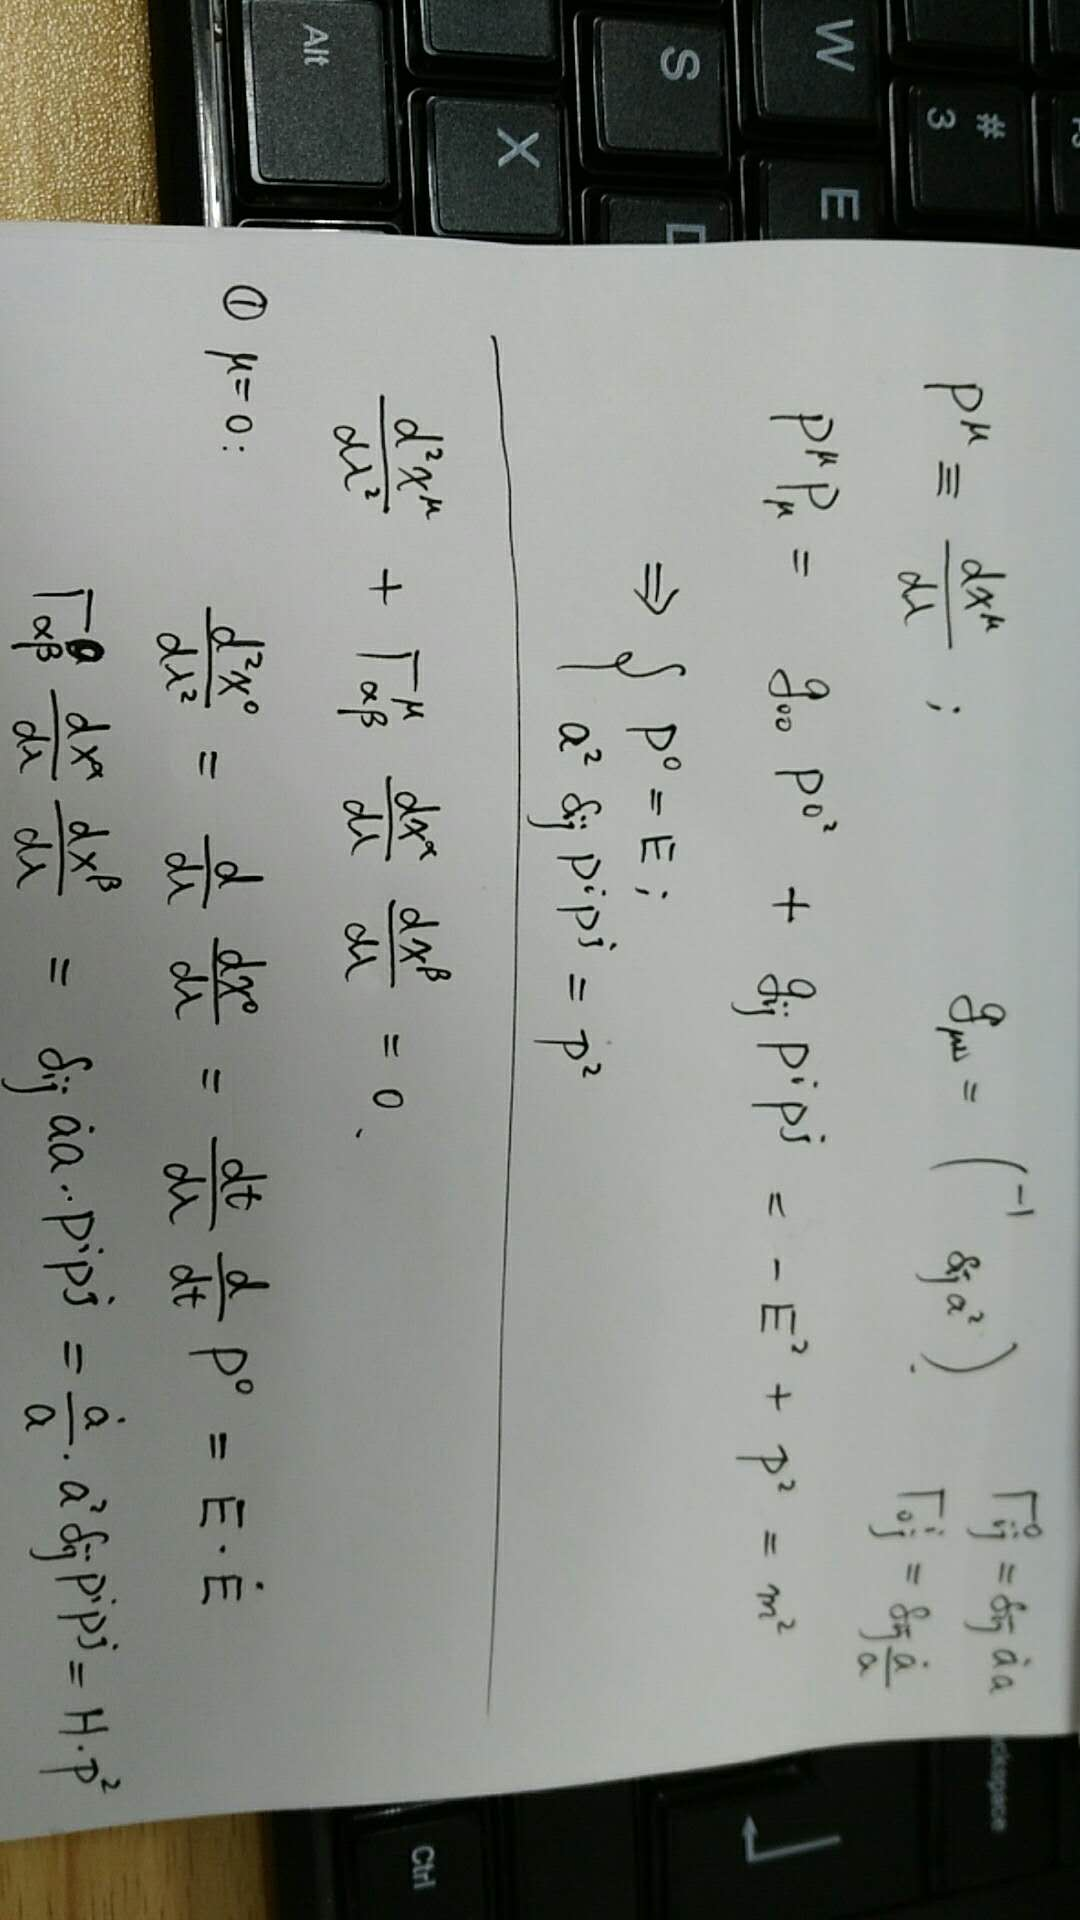 P^μ ≡ dx^μ/dλ ; g_μν = ( -1 δ_ij a² ) . Γ⁰_ij = δ_ij ȧa
Γ^i_0j = δ_ij ȧ/a
P^μ P_μ = g_00 P^0² + g_ij P^i P^j = - E² + p² = m²
⇒ { P^0 = E ;
a² δ_ij P^i P^j = p²
d²x^μ/dλ² + Γ^μ_αβ dx^α/dλ dx^β/dλ = 0 .
① μ = 0 :
d²x^0/dλ² = d/dλ dx^0/dλ = dt/dλ d/dt P^0 = E · Ė
Γ^0_αβ dx^α/dλ dx^β/dλ = δ_ij ȧa · P^i P^j = ȧ/a · a² δ_ij P^i P^j = H · p²
# 3
W E
S
X
Alt
Ctrl